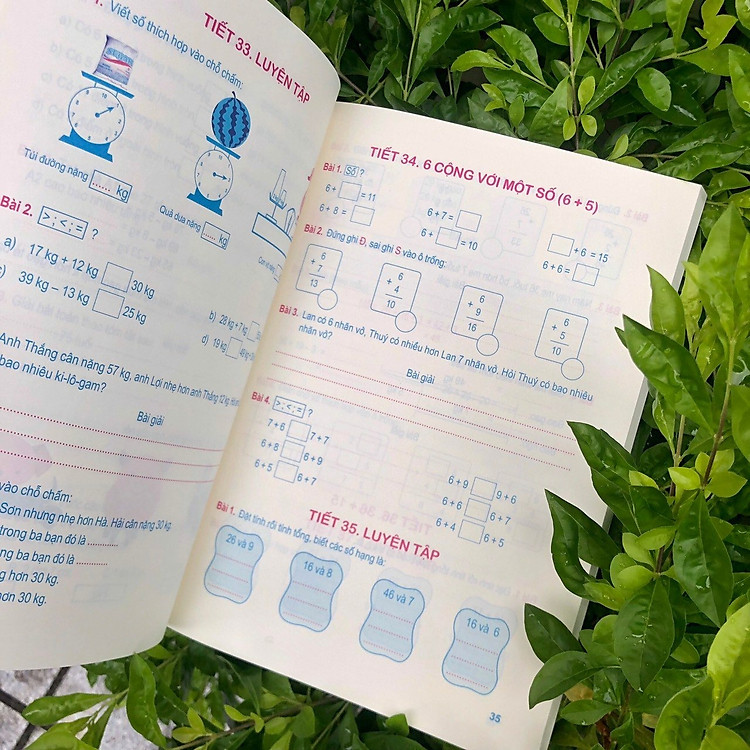 TIẾT 33. LUYỆN TẬP
1. Viết số thích hợp vào chỗ chấm:
Túi đường nặng
...... kg
Quả dưa nặng
...... kg
Bài 2. >; <; = ?
a) 17 kg + 12 kg 30 kg
39 kg – 13 kg 25 kg
b) 28 kg + 7 kg
d) 19 kg
Anh Thắng cân nặng 57 kg, anh Lợi nhẹ hơn anh Thắng 12 kg.
bao nhiêu ki-lô-gam?
Bài giải
vào chỗ chấm:
Sơn nhưng nhẹ hơn Hà. Hải cân nặng 30 kg
trong ba bạn đó là ..........
ng ba bạn đó là ..........
g hơn 30 kg.
hơn 30 kg.
TIẾT 34. 6 CỘNG VỚI MỘT SỐ (6 + 5)
Bài 1. Số ?
6 + = 11
6 + 7 =
+ 6 = 15
6 + 8 =
6 + = 10
6 + 6 =
Bài 2. Đúng ghi Đ, sai ghi S vào ô trống:
6 + 7 13
6 + 4 10
6 + 9 16
6 + 5 10
Bài 3. Lan có 6 nhãn vở, Thuý có nhiều hơn Lan 7 nhãn vở. Hỏi Thuý có bao nhiêu
nhãn vở?
Bài giải
Bài 4. >; <; = ?
7 + 6 7 + 7
6 + 9 9 + 6
6 + 8 6 + 9
6 + 6 6 + 7
6 + 5 6 + 7
6 + 4 6 + 5
TIẾT 35. LUYỆN TẬP
Bài 1. Đặt tính rồi tính tổng, biết các số hạng là:
26 và 9
16 và 8
46 và 7
16 và 6
35